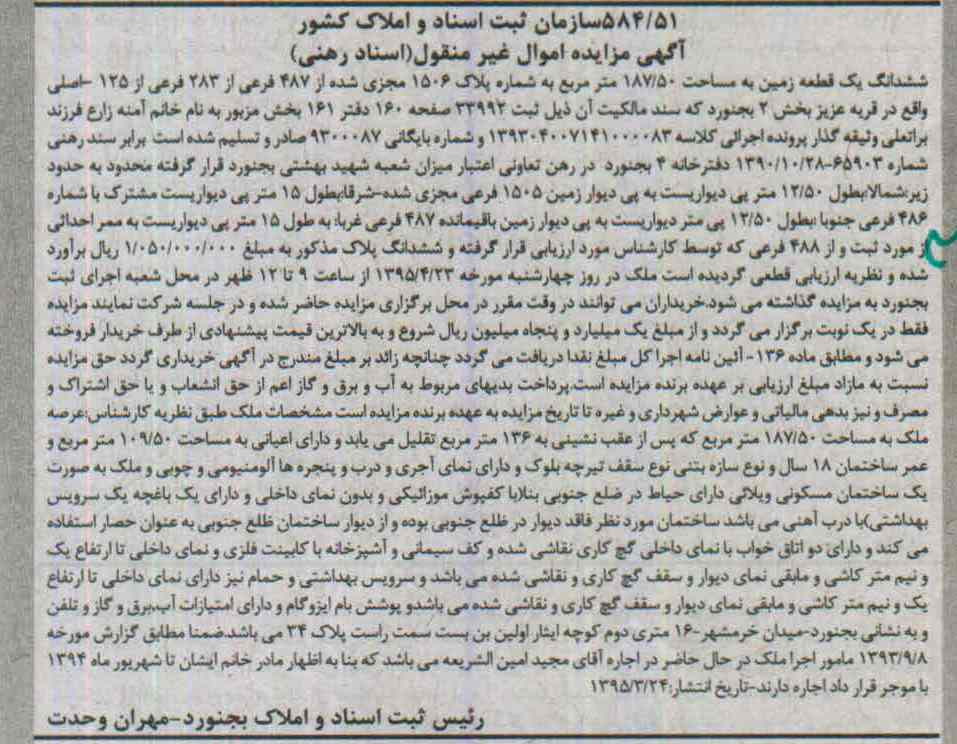 ۵۸۴/۵۱سازمان ثبت اسناد و املاک کشور
آگهی مزایده اموال غیر منقول(اسناد رهنی)
ششدانگ یک قطعه زمین به مساحت ۱۸۷/۵۰ متر مربع به شماره پلاک ۱۵۰۶ مجزی شده از ۴۸۷ فرعی از ۲۸۳ فرعی از ۱۲۵ -اصلی
واقع در قریه عزیز بخش ۲ بجنورد که سند مالکیت آن ذیل ثبت ۳۳۹۹۲ صفحه ۱۶۰ دفتر ۱۶۱ بخش مزبور به نام خانم آمنه زارع فرزند
براتعلی وثیقه گذار پرونده اجرائی کلاسه ۱۳۹۳۰۴۰۰۷۱۴۱۰۰۰۰۸۳ و شماره بایگانی ۹۳۰۰۰۸۷ صادر و تسلیم شده است برابر سند رهنی
شماره ۶۵۹۰۳-۱۳۹۰/۱۰/۲۸ دفترخانه ۴ بجنورد در رهن تعاونی اعتبار میزان شعبه شهید بهشتی بجنورد قرار گرفته محدود به حدود
زیر:شمالا:بطول ۱۲/۵۰ متر پی دیواریست به پی دیوار زمین ۱۵۰۵ فرعی مجزی شده-شرقا:بطول ۱۵ متر پی دیواریست مشترک با شماره
۴۸۶ فرعی جنوبا:بطول ۱۲/۵۰ پی متر دیواریست به پی دیوار زمین باقیمانده ۴۸۷ فرعی غربا: به طول ۱۵ متر پی دیواریست به ممر احداثی
از مورد ثبت و از ۴۸۸ فرعی که توسط کارشناس مورد ارزیابی قرار گرفته و ششدانگ پلاک مذکور به مبلغ ۱/۰۵۰/۰۰۰/۰۰۰ ریال برآورد
شده و نظریه ارزیابی قطعی گردیده است ملک در روز چهارشنبه مورخه ۱۳۹۵/۴/۲۳ از ساعت ۹ تا ۱۲ ظهر در محل شعبه اجرای ثبت
بجنورد به مزایده گذاشته می شود.خریداران می توانند در وقت مقرر در محل برگزاری مزایده حاضر شده و در جلسه شرکت نمایند مزایده
فقط در یک نوبت برگزار می گردد و از مبلغ یک میلیارد و پنجاه میلیون ریال شروع و به بالاترین قیمت پیشنهادی از طرف خریدار فروخته
می شود و مطابق ماده ۱۳۶- آئین نامه اجرا کل مبلغ نقدا دریافت می گردد چنانچه زائد بر مبلغ مندرج در آگهی خریداری گردد حق مزایده
نسبت به مازاد مبلغ ارزیابی بر عهده برنده مزایده است.پرداخت بدیهای مربوط به آب و برق و گاز اعم از حق انشعاب و یا حق اشتراک و
مصرف و نیز بدهی مالیاتی و عوارض شهرداری و غیره تا تاریخ مزایده به عهده برنده مزایده است مشخصات ملک طبق نظریه کارشناس:عرصه
ملک به مساحت ۱۸۷/۵۰ متر مربع که پس از عقب نشینی به ۱۳۶ متر مربع تقلیل می یابد و دارای اعیانی به مساحت ۱۰۹/۵۰ متر مربع و
عمر ساختمان ۱۸ سال و نوع سازه بتنی نوع سقف تیرچه بلوک و دارای نمای آجری و درب و پنجره ها آلومنیومی و چوبی و ملک به صورت
یک ساختمان مسکونی ویلائی دارای حیاط در ضلع جنوبی بنا(با کفپوش موزائیکی و بدون نمای داخلی و دارای یک باغچه یک سرویس
بهداشتی)با درب آهنی می باشد ساختمان مورد نظر فاقد دیوار در ظلع جنوبی بوده و از دیوار ساختمان ظلع جنوبی به عنوان حصار استفاده
می کند و دارای دو اتاق خواب با نمای داخلی گچ کاری نقاشی شده و کف سیمانی و آشپزخانه با کابینت فلزی و نمای داخلی تا ارتفاع یک
و نیم متر کاشی و مابقی نمای دیوار و سقف گچ کاری و نقاشی شده می باشد و سرویس بهداشتی و حمام نیز دارای نمای داخلی تا ارتفاع
یک و نیم متر کاشی و مابقی نمای دیوار و سقف گچ کاری و نقاشی شده می باشدو پوشش بام ایزوگام و دارای امتیازات آب،برق و گاز و تلفن
و به نشانی بجنورد-میدان خرمشهر-۱۶ متری دوم کوچه ایثار اولین بن بست سمت راست پلاک ۳۴ می باشد.ضمنا مطابق گزارش مورخه
۱۳۹۳/۹/۸ مامور اجرا ملک در حال حاضر در اجاره آقای مجید امین الشریعه می باشد که بنا به اظهار مادر خانم ایشان تا شهریور ماه ۱۳۹۴
با موجر قرار داد اجاره دارند-تاریخ انتشار:۱۳۹۵/۳/۲۴
رئیس ثبت اسناد و املاک بجنورد-مهران وحدت